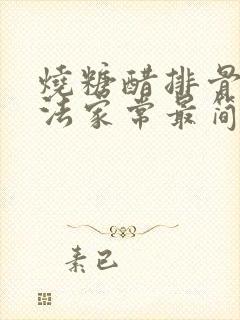 燒糖醋排骨
法家常最简
素已